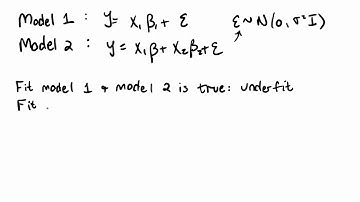 Model 1 : Y= X₁β₁ + ε ε~N(0,σ²I)
Model 2 : y = X₁β + X₂β₂+ε
Fit model 1 & model 2 is true: underfit
Fit